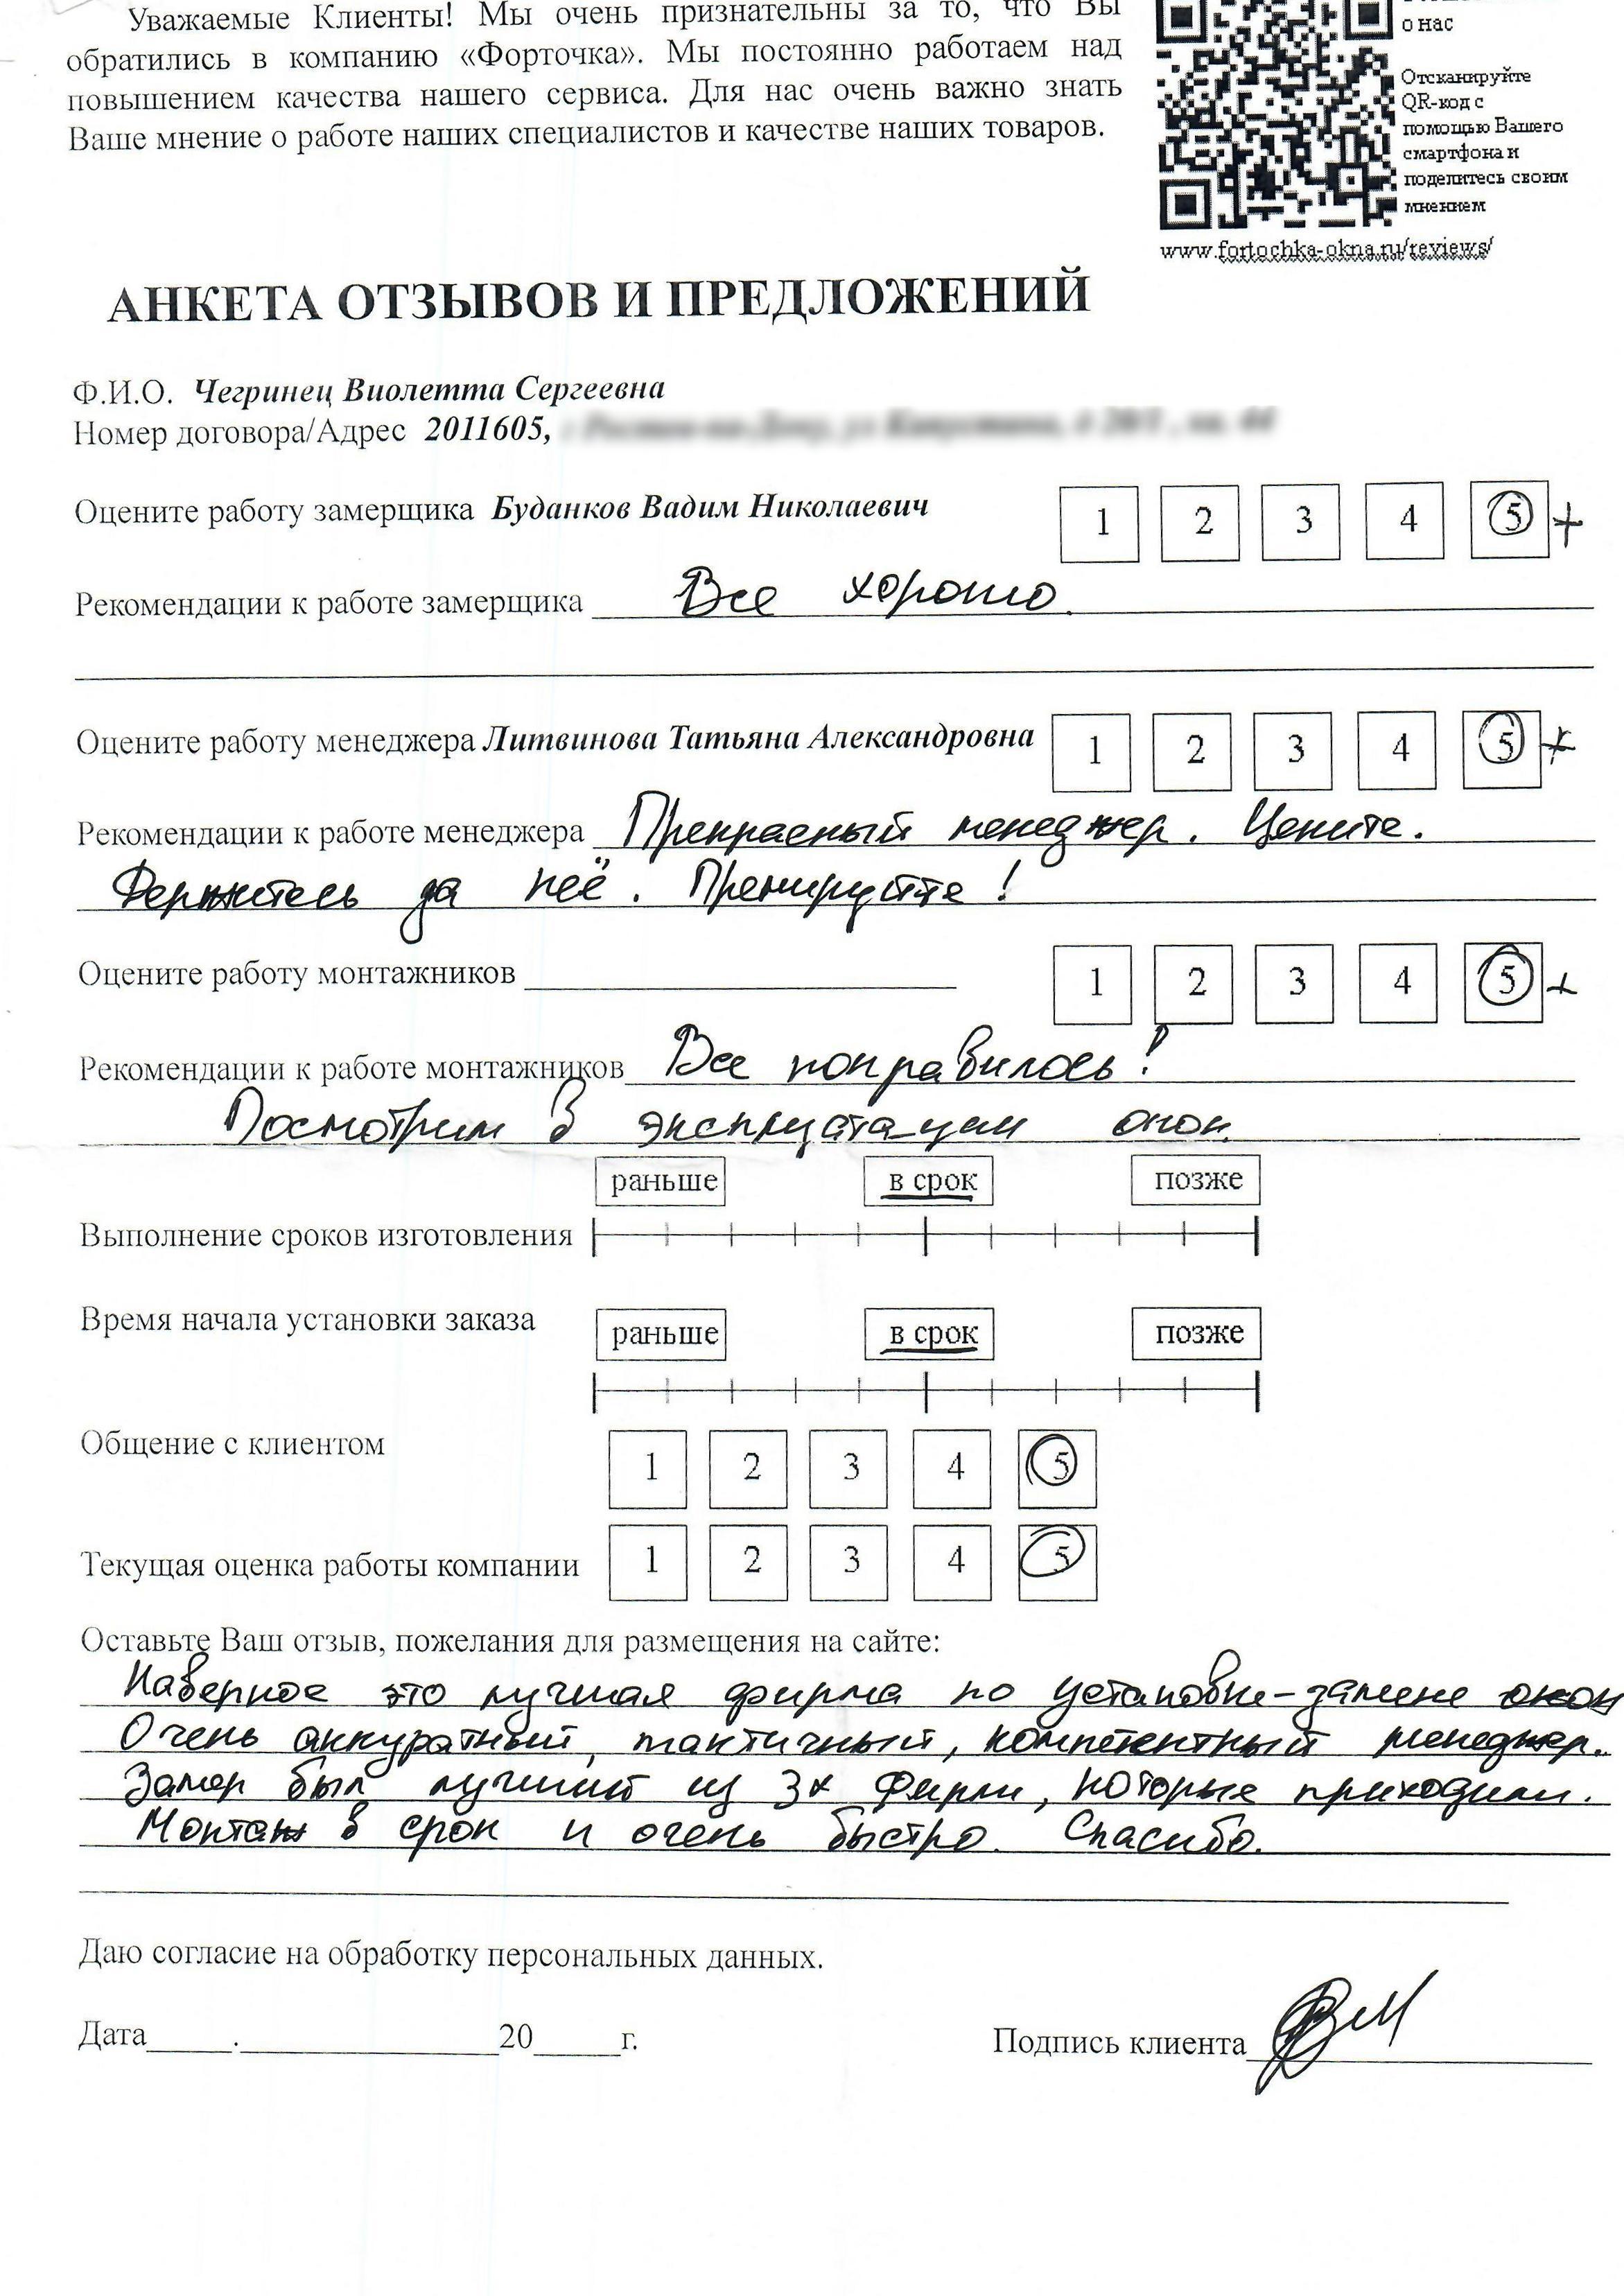 Уважаемые Клиенты! Мы очень признательны за то, что Вы
обратились в компанию «Форточка». Мы постоянно работаем над
повышением качества нашего сервиса. Для нас очень важно знать
Ваше мнение о работе наших специалистов и качестве наших товаров.
о нас
Отсканируйте
QR-код с
помощью Вашего
смартфона и
поделитесь своим
мнением
www.fortochka-okna.ru/reviews/
АНКЕТА ОТЗЫВОВ И ПРЕДЛОЖЕНИЙ
Ф.И.О. Чегринец Виолетта Сергеевна
Номер договора/Адрес 2011605,
Оцените работу замерщика Буданков Вадим Николаевич 1 2 3 4 5 +
Рекомендации к работе замерщика Все хорошо.
Оцените работу менеджера Литвинова Татьяна Александровна 1 2 3 4 5 +
Рекомендации к работе менеджера Прекрасный менеджер. Цените.
Держитесь за неё. Премируйте!
Оцените работу монтажников 1 2 3 4 5 +
Рекомендации к работе монтажников Все понравилось!
Посмотрим в эксплуатации окон.
раньше в срок позже
Выполнение сроков изготовления
Время начала установки заказа раньше в срок позже
Общение с клиентом 1 2 3 4 5
Текущая оценка работы компании 1 2 3 4 5
Оставьте Ваш отзыв, пожелания для размещения на сайте:
Наверное это лучшая фирма по установке-замене окон
Очень аккуратный, тактичный, компетентный менеджер.
Замер был лучший из 3х фирм, которые приходили.
Монтаж в срок и очень быстро. Спасибо.
Даю согласие на обработку персональных данных.
Дата_____._______________20_____г. Подпись клиента